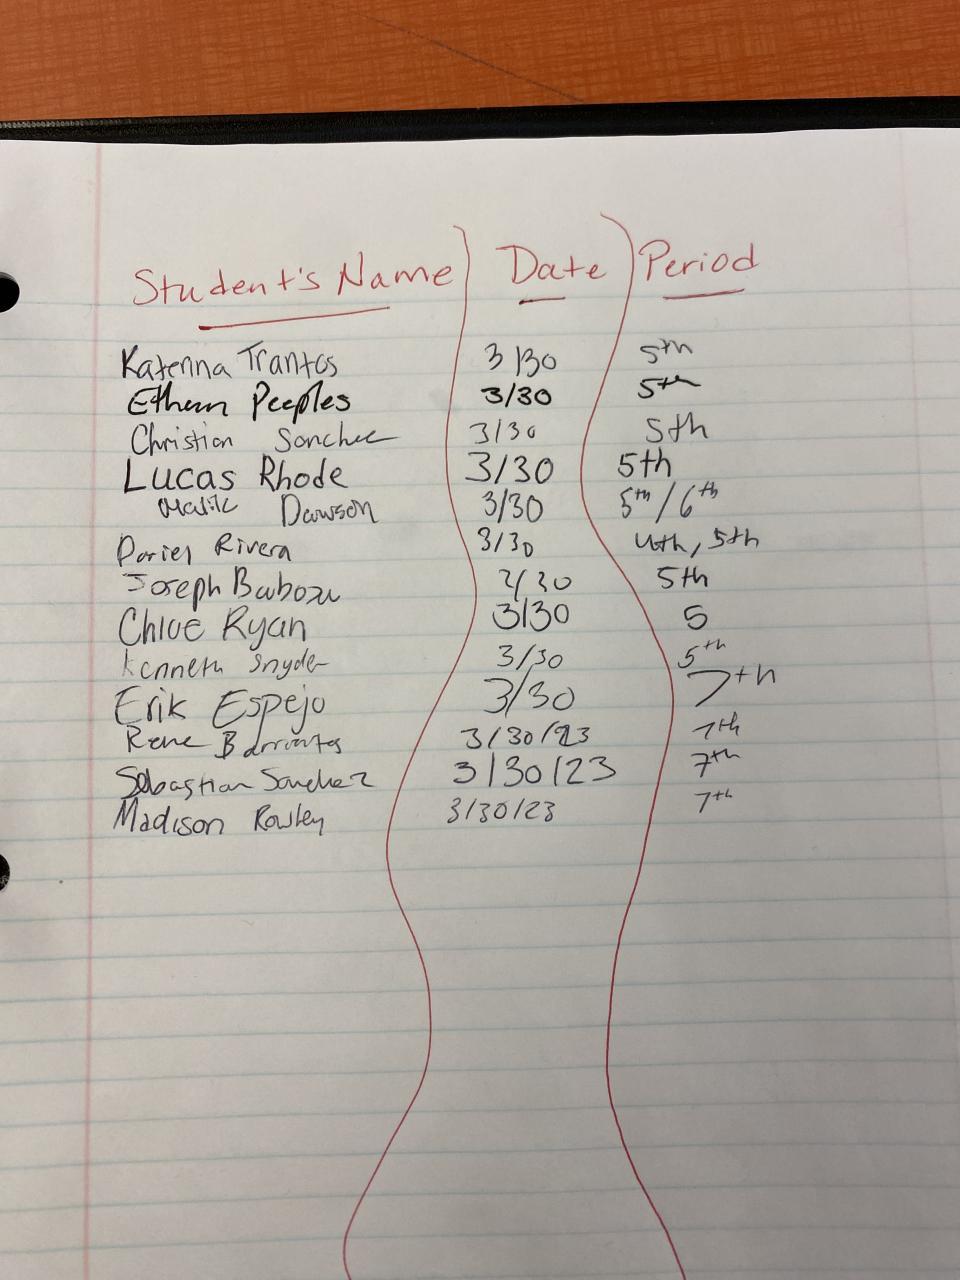 Student's Name Date Period
Katerina Trantos 3/30 5th
Ethan Peeples 3/30 5th
Christian Sanchez 3/30 5th
Lucas Rhode 3/30 5th
Malik Dawson 3/30 5th/6th
Dariel Rivera 3/30 4th, 5th
Joseph 3/30 5th
Chloe Ryan 3/30 5
Kenneth Snyder 3/30 5th
Erik Espejo 3/30 7th
Rene Barrientos 3/30/23 7th
Sebastian Sanchez 3/30/23 7th
Madison Rowley 3/30/23 7th